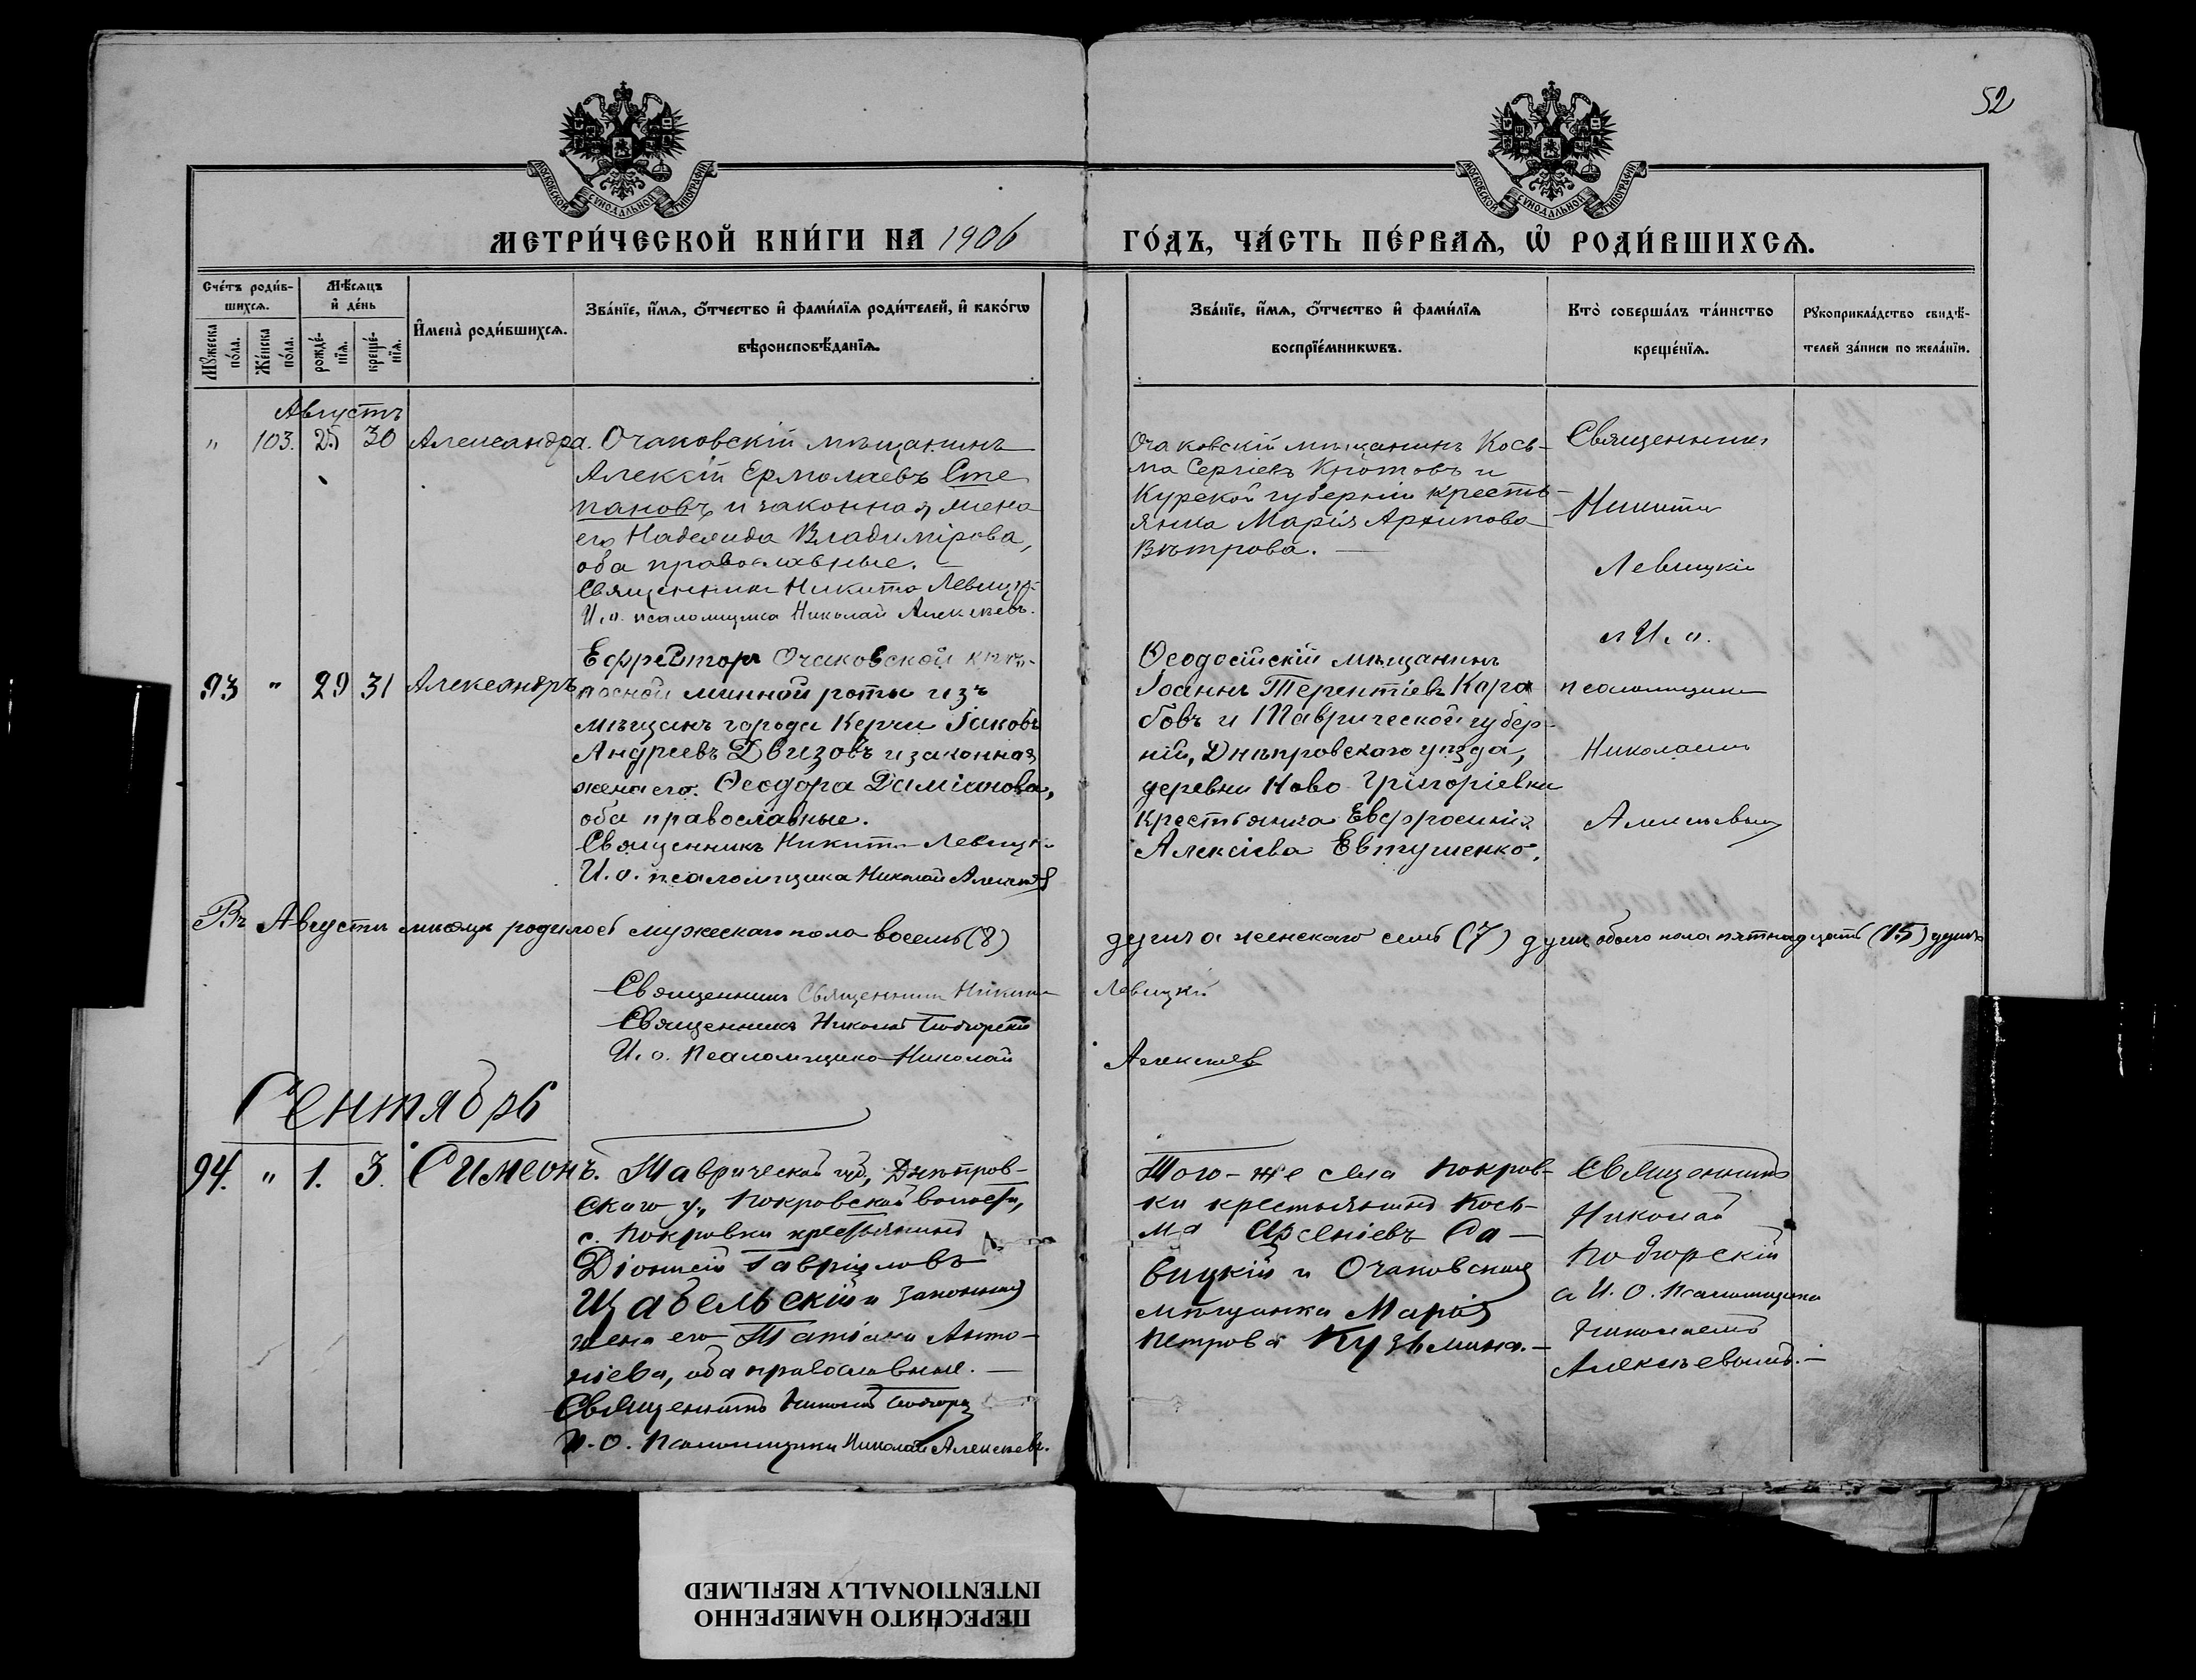 52
МОСКОВСКОЙ СУНОДАЛЬНОЙ ТИПОГРАФІИ
МОСКОВСКОЙ СУНОДАЛЬНОЙ ТИПОГРАФІИ
МЕТРИ́ЧЕСКОЙ КНИ́ГИ НА 1906
ГО́ДЪ, ЧА́СТЬ ПЕ́РВАѦ, Ѽ РОДИ́ВШИХСѦ.
Сче́тъ роди́вшихся.
Мѣ́сяцъ и҆ де́нь
Мꙋ́жеска по́ла.
Же́нска по́ла.
рожде́нїѧ.
креще́нїѧ.
И҆мена̀ роди́вшихсѧ.
Зва́нїе, и҆́мѧ, ѻ҆́тчество и҆ фами́лїѧ роди́телей, и҆ како́гѡ
вѣроисповѣ́данїѧ.
Зва́нїе, и҆́мѧ, ѻ҆́тчество и҆ фами́лїѧ
воспрїе́мникѡвъ.
Кто̀ соверша́лъ та́инство
креще́нїѧ.
Рꙋкоприкла́дство свидѣ́-
телей за́писи по жела́нїю.
Августъ
" 103. 25 30 Александра. Очаковскій мѣщанинъ
Алексій Ермолаевъ Сте
пановъ и законная жена
его Надежда Владимірова,
оба православные. —
Священникъ Никита Левицкій
И. о. псаломщика Николай Алексѣевъ.
Очаковскій мѣщанинъ Кось-
ма Сергіевъ Кротовъ и
Курской губерніи кресть-
янка Марія Архипова
Вѣтрова. —
Священникъ
Никита
Левицкій
и И. о.
псаломщика
Николаемъ
Алексѣевымъ
93 " 29 31 Александръ
Ефрейторъ Очаковской крѣ-
постной минной роты изъ
мѣщанъ города Керчи Іаковъ
Андреевъ Двизовъ и законная
жена его Ѳеодора Даміанова,
оба православные.
Священникъ Никита Левицкій
И. о. псаломщика Николай Алексѣевъ
Ѳеодосійскій мѣщанинъ
Іоаннъ Терентіевъ Кора
бовъ и Таврической губер-
ніи, Днѣпровскаго уѣзда,
деревни Ново Григоріевки
крестьянка Евфросинія
Алексіева Евтушенко.
Въ Августѣ мѣсяцѣ родилось мужескаго пола восемь (8)
душъ а женскаго семь (7) душъ обоего пола пятнадцать (15) душъ
Священникъ Священникъ Никита
Левицкій
Священникъ Николай Подгорскій
И. о. Псаломщика Николай
Алексѣевъ
Сентябрь
94. " 1. 3. Симеонъ. Таврической губ., Днѣпров-
скаго у., Покровской волости,
с. Покровки крестьянинъ
Діонисій Гавріиловъ
Щабельскій и законная
жена его Татіана Анто-
ніева, оба православные. —
Священникъ Николай Подгорскій
И. О. Псаломщика Николай Алексѣевъ.
Того-же села Покров-
ки крестьянинъ Кось-
ма Арсеніевъ Са-
вицкій и Очаковская
мѣщанка Марія
Петрова Кузьмина. —
Священникъ
Николай
Подгорскій
а И. О. Псаломщика
Николаемъ
Алексѣевымъ. —
ПЕРЕСНЯТО НАМЕРЕННО
INTENTIONALLY REFILMED